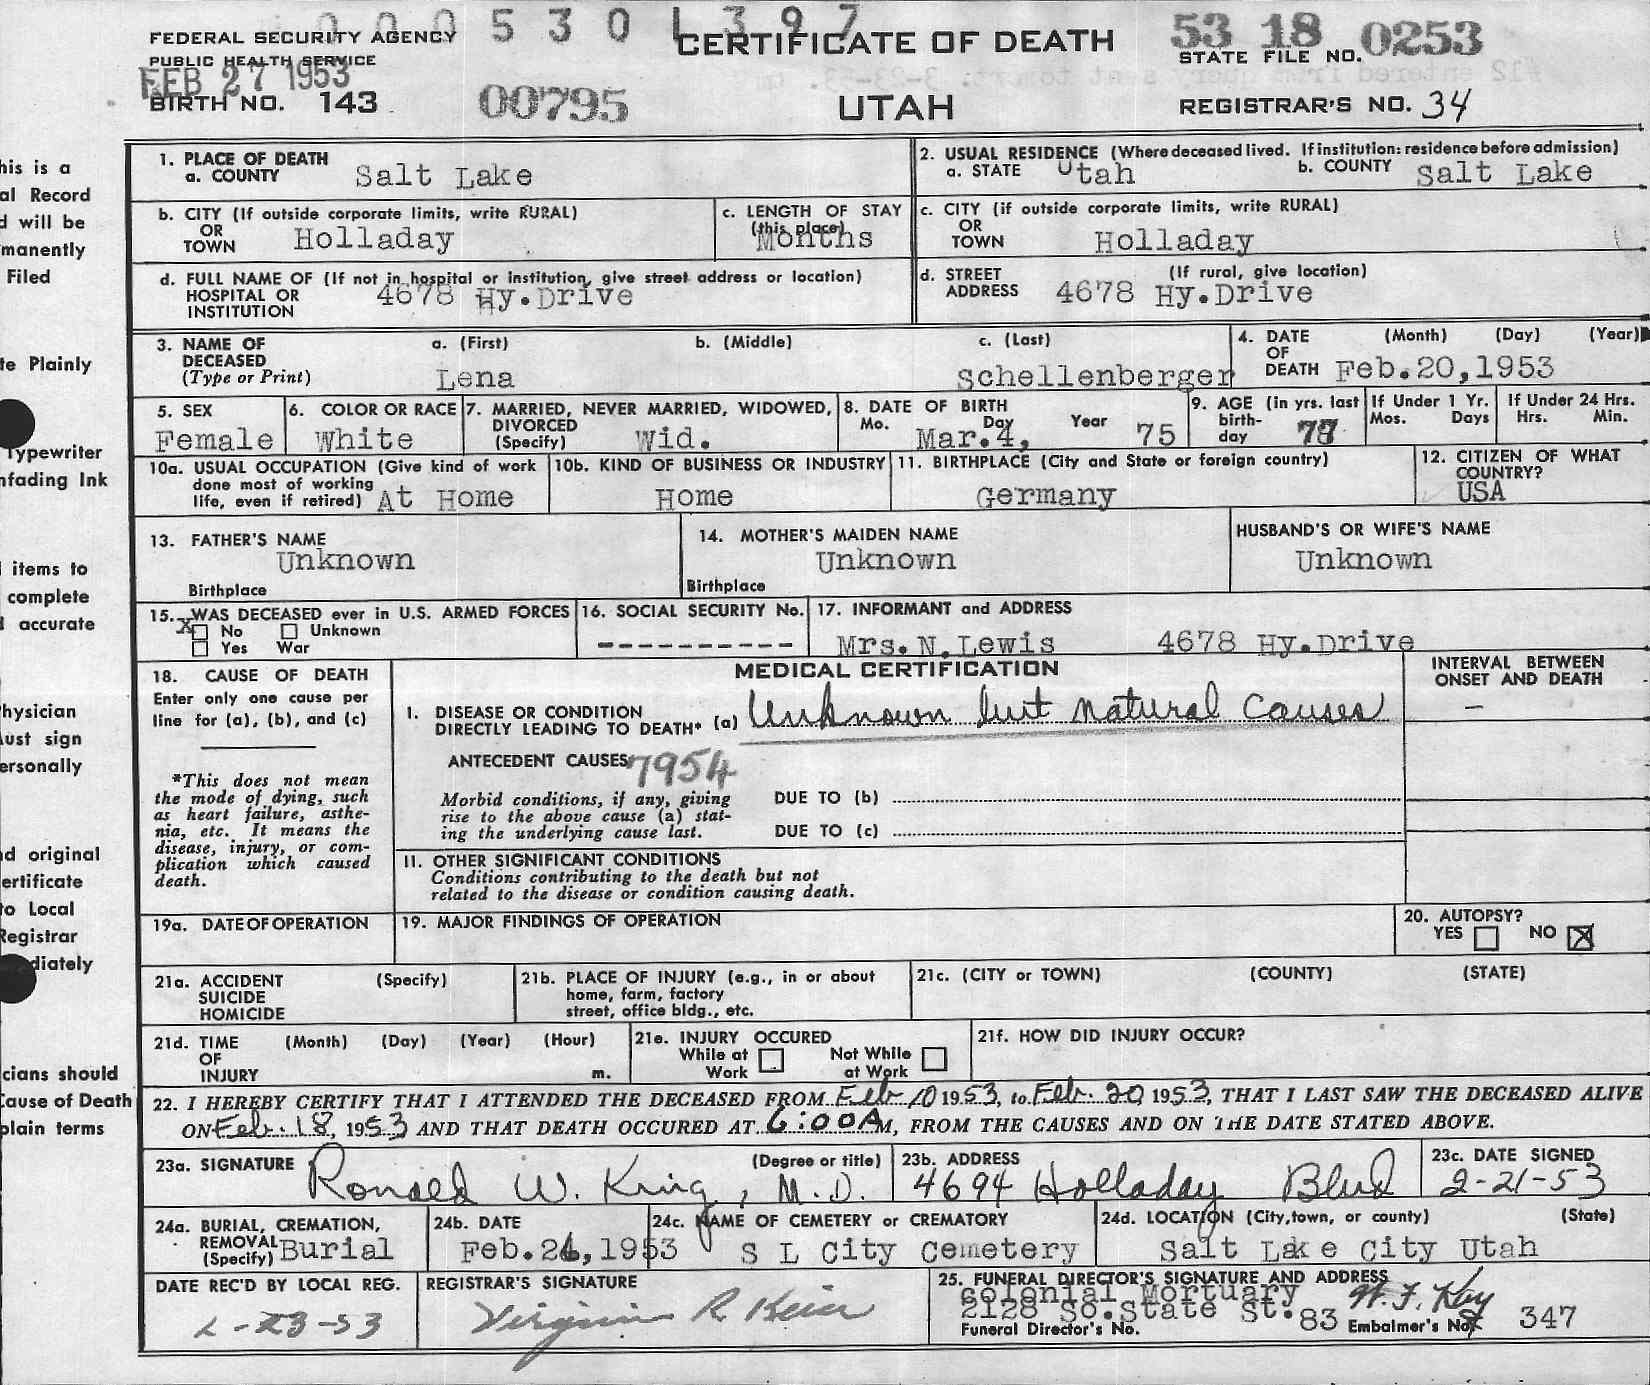 0 0 0 5 3 0 1 3 9 7
FEDERAL SECURITY AGENCY
PUBLIC HEALTH SERVICE
FEB 27 1953
BIRTH NO. 143
00795
CERTIFICATE OF DEATH
UTAH
53 18 0253
STATE FILE NO.
REGISTRAR'S NO. 34
1. PLACE OF DEATH
a. COUNTY Salt Lake
2. USUAL RESIDENCE (Where deceased lived. If institution: residence before admission)
a. STATE Utah b. COUNTY Salt Lake
b. CITY (If outside corporate limits, write RURAL)
OR
TOWN Holladay
c. LENGTH OF STAY
(this place)
Months
c. CITY (if outside corporate limits, write RURAL)
OR
TOWN Holladay
d. FULL NAME OF (If not in hospital or institution, give street address or location)
HOSPITAL OR
INSTITUTION 4678 Hy.Drive
d. STREET (If rural, give location)
ADDRESS 4678 Hy.Drive
3. NAME OF
DECEASED
(Type or Print)
a. (First) b. (Middle) c. (Last)
Lena Schellenberger
4. DATE (Month) (Day) (Year)
OF
DEATH Feb.20,1953
5. SEX
Female
6. COLOR OR RACE
White
7. MARRIED, NEVER MARRIED, WIDOWED,
DIVORCED
(Specify) Wid.
8. DATE OF BIRTH
Mo. Day Year
Mar.4, 75
9. AGE (in yrs. last
birth-
day 77
If Under 1 Yr.
Mos. Days
If Under 24 Hrs.
Hrs. Min.
10a. USUAL OCCUPATION (Give kind of work
done most of working
life, even if retired) At Home
10b. KIND OF BUSINESS OR INDUSTRY
Home
11. BIRTHPLACE (City and State or foreign country)
Germany
12. CITIZEN OF WHAT
COUNTRY?
USA
13. FATHER'S NAME
Unknown
Birthplace
14. MOTHER'S MAIDEN NAME
Unknown
Birthplace
HUSBAND'S OR WIFE'S NAME
Unknown
15. WAS DECEASED ever in U.S. ARMED FORCES
X No Unknown
Yes War
16. SOCIAL SECURITY No.
----------
17. INFORMANT and ADDRESS
Mrs.N.Lewis 4678 Hy.Drive
18. CAUSE OF DEATH
Enter only one cause per
line for (a), (b), and (c)
*This does not mean
the mode of dying, such
as heart failure, asthe-
nia, etc. It means the
disease, injury, or com-
plication which caused
death.
MEDICAL CERTIFICATION
INTERVAL BETWEEN
ONSET AND DEATH
I. DISEASE OR CONDITION
DIRECTLY LEADING TO DEATH* (a) Unknown but natural causes –
ANTECEDENT CAUSES 7954
Morbid conditions, if any, giving
rise to the above cause (a) stat-
ing the underlying cause last.
DUE TO (b)
DUE TO (c)
II. OTHER SIGNIFICANT CONDITIONS
Conditions contributing to the death but not
related to the disease or condition causing death.
19a. DATE OF OPERATION
19. MAJOR FINDINGS OF OPERATION
20. AUTOPSY?
YES NO X
21a. ACCIDENT (Specify)
SUICIDE
HOMICIDE
21b. PLACE OF INJURY (e.g., in or about
home, farm, factory
street, office bldg., etc.
21c. (CITY or TOWN) (COUNTY) (STATE)
21d. TIME (Month) (Day) (Year) (Hour)
OF
INJURY m.
21e. INJURY OCCURED
While at Work
Not While at Work
21f. HOW DID INJURY OCCUR?
22. I HEREBY CERTIFY THAT I ATTENDED THE DECEASED FROM Feb 10 1953, to Feb. 20 1953, THAT I LAST SAW THE DECEASED ALIVE
ON Feb. 18, 1953 AND THAT DEATH OCCURED AT 6:00A M, FROM THE CAUSES AND ON THE DATE STATED ABOVE.
23a. SIGNATURE (Degree or title)
Ronald W. King, M.D.
23b. ADDRESS
4694 Holladay Blvd
23c. DATE SIGNED
2-21-53
24a. BURIAL, CREMATION,
REMOVAL
(Specify) Burial
24b. DATE
Feb.26,1953
24c. NAME OF CEMETERY or CREMATORY
S L City Cemetery
24d. LOCATION (City, town, or county) (State)
Salt Lake City Utah
DATE REC'D BY LOCAL REG.
2-23-53
REGISTRAR'S SIGNATURE
Virginia R
25. FUNERAL DIRECTOR'S SIGNATURE AND ADDRESS
Colonial Mortuary
2128 So.State St.
Funeral Director's No. 83 Embalmer's No. 347
his is a
al Record
d will be
manently
Filed
te Plainly
Typewriter
nfading Ink
items to
complete
accurate
hysician
ust sign
ersonally
d original
ertificate
to Local
Registrar
diately
cians should
Cause of Death
plain terms